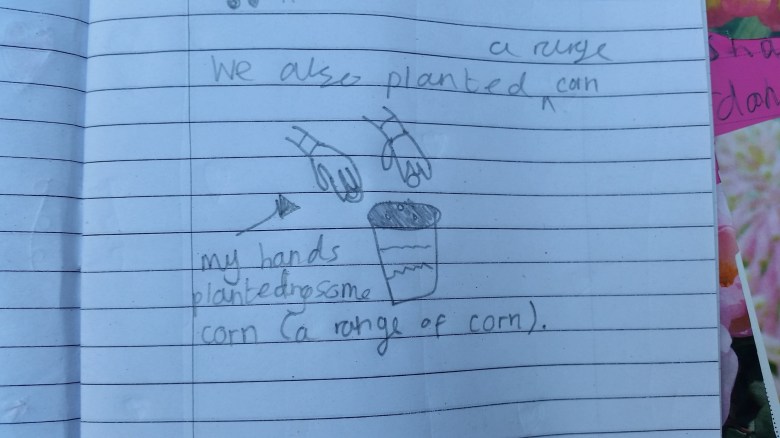 a range
We also planted ^ corn
my hands
plantedngsome
corn (a range of corn).
sha
don